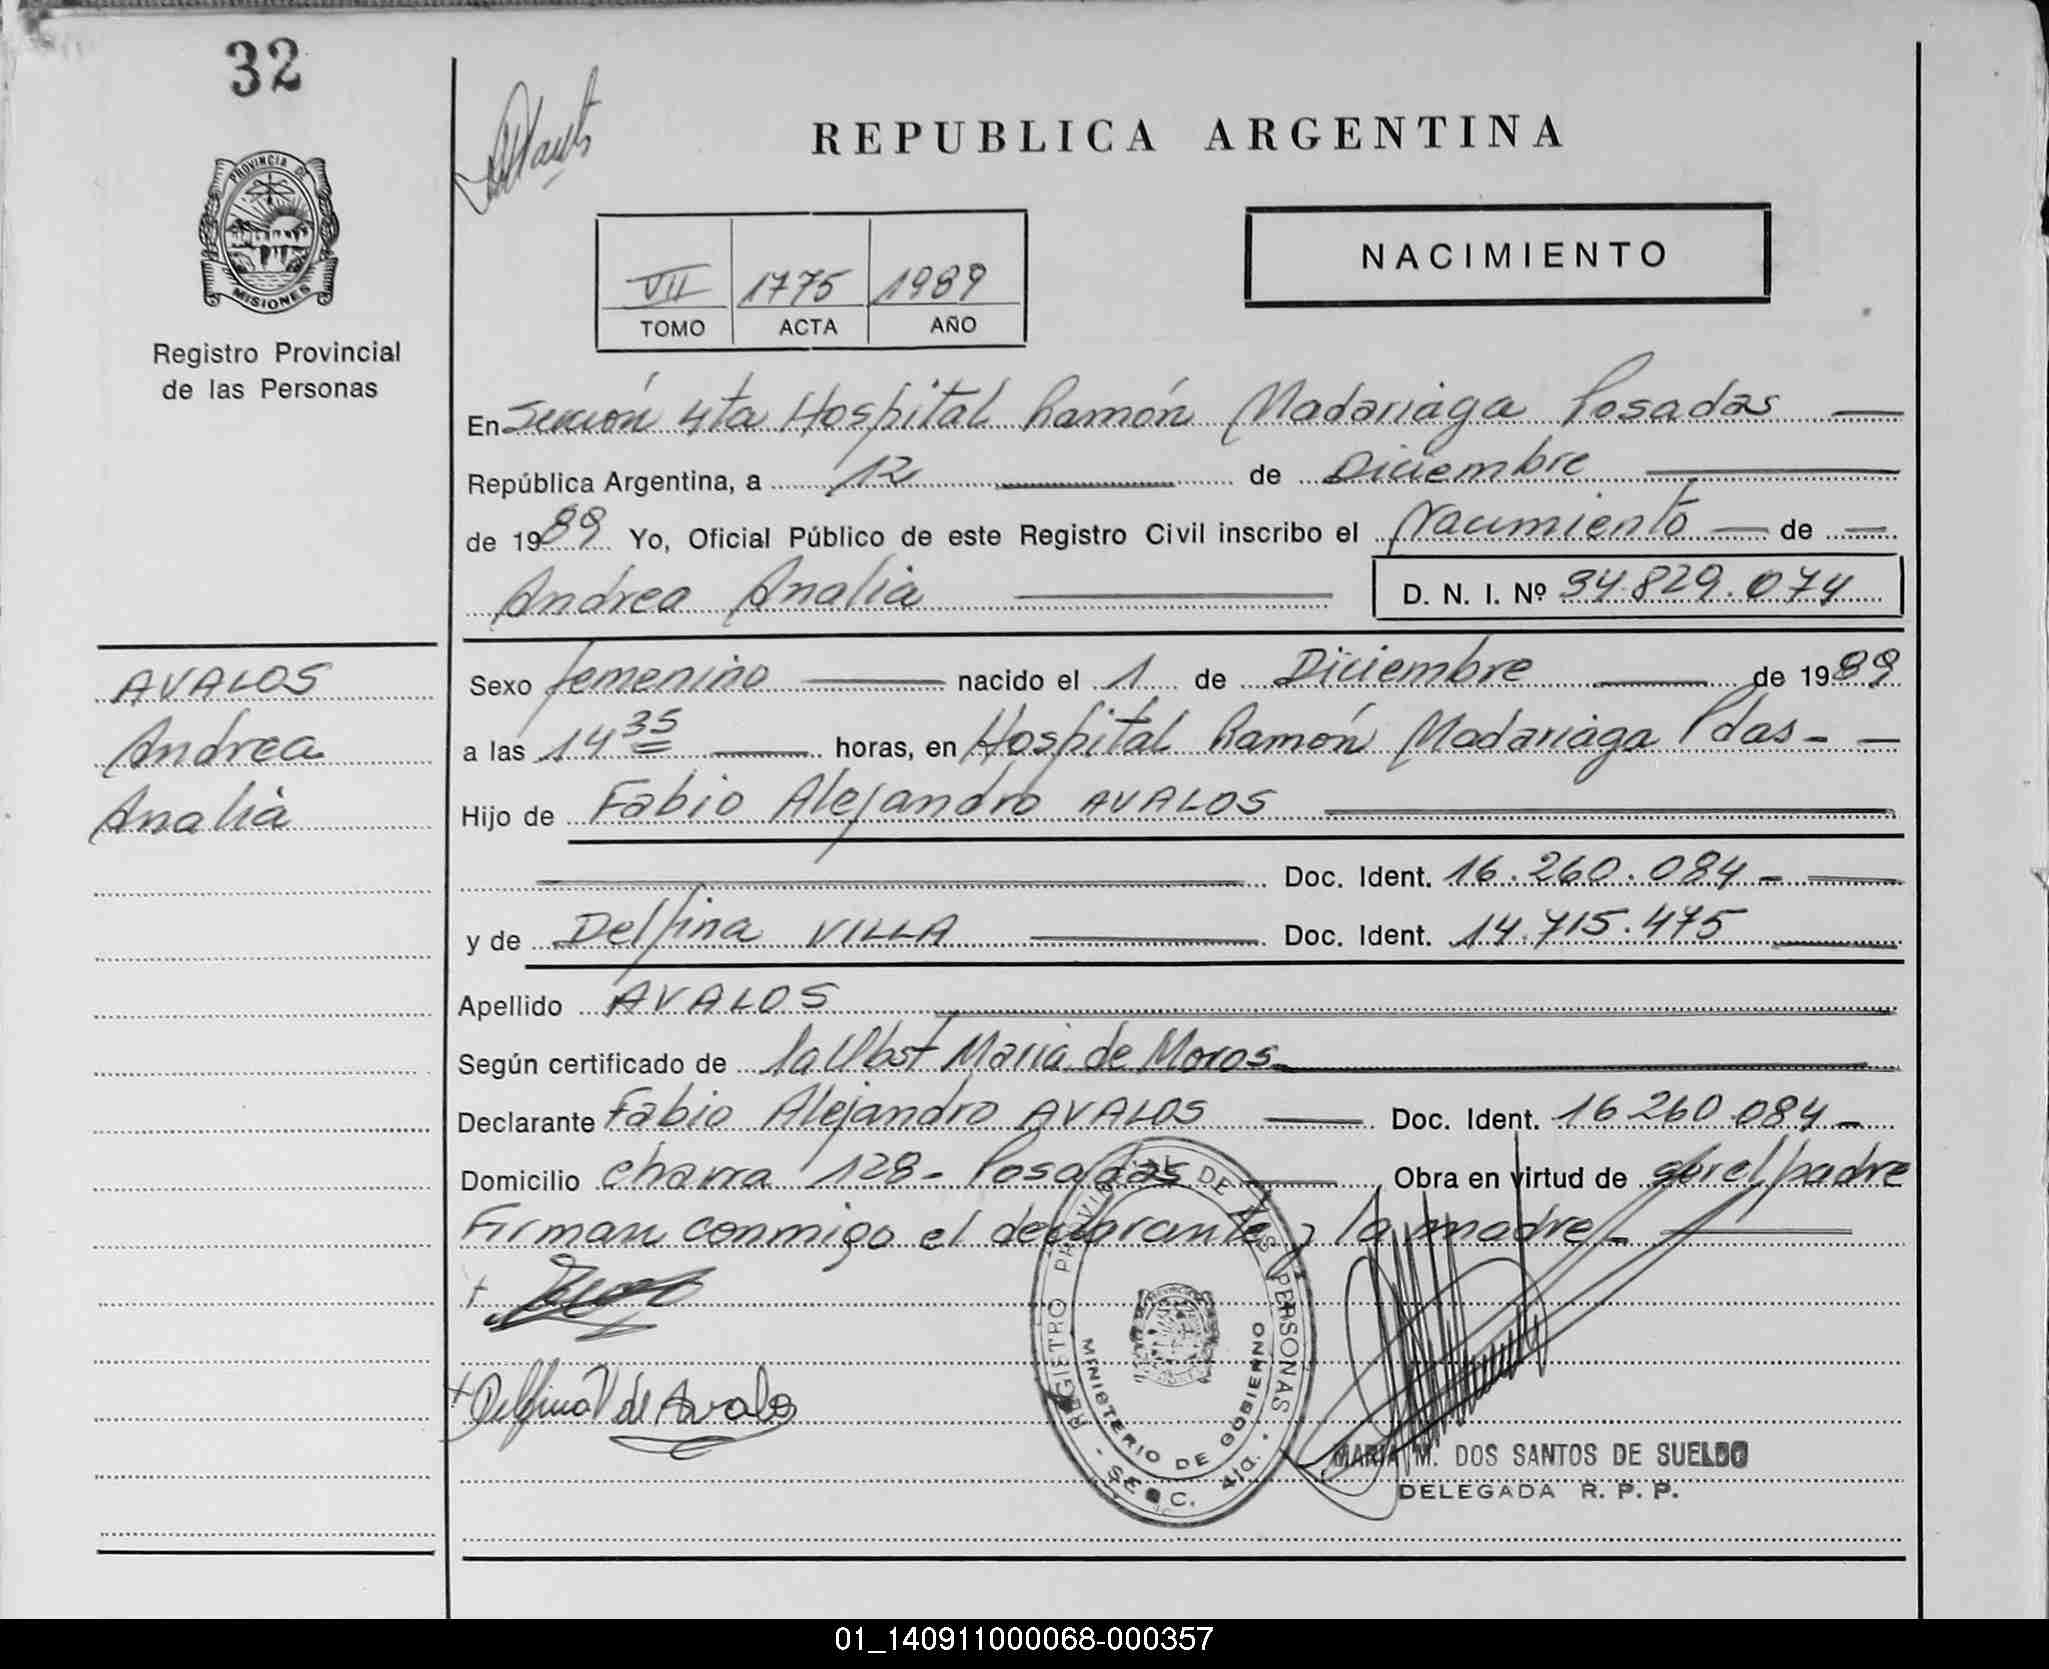 32
PROVINCIA DE
MISIONES
Registro Provincial
de las Personas
REPUBLICA ARGENTINA
NACIMIENTO
VII 1775 1989
TOMO ACTA AÑO
En Sección 4ta Hospital Ramón Madariaga Posadas
República Argentina, a 12 de Diciembre
de 1989 Yo, Oficial Público de este Registro Civil inscribo el Nacimiento de
Andrea Analia D. N. I. Nº 34.829.074
AVALOS
Andrea
Analia
Sexo femenino nacido el 1 de Diciembre de 1989
a las 14 35 horas, en Hospital Ramón Madariaga Pdas-
Hijo de Fabio Alejandro AVALOS
Doc. Ident. 16.260.084-
y de Delfina VILLA Doc. Ident. 14.715.475
Apellido AVALOS
Según certificado de la Obst Maria de Moros
Declarante Fabio Alejandro AVALOS Doc. Ident. 16260.084-
Domicilio chacra 128- Posadas Obra en virtud de ser el padre
Firman conmigo el declarante y la madre-
Delfina V de Avalos
REGISTRO PROVINCIAL DE LAS PERSONAS
MINISTERIO DE GOBIERNO
SECC. 4ta.
MARIA M. DOS SANTOS DE SUELDO
DELEGADA R. P. P.
01_140911000068-000357